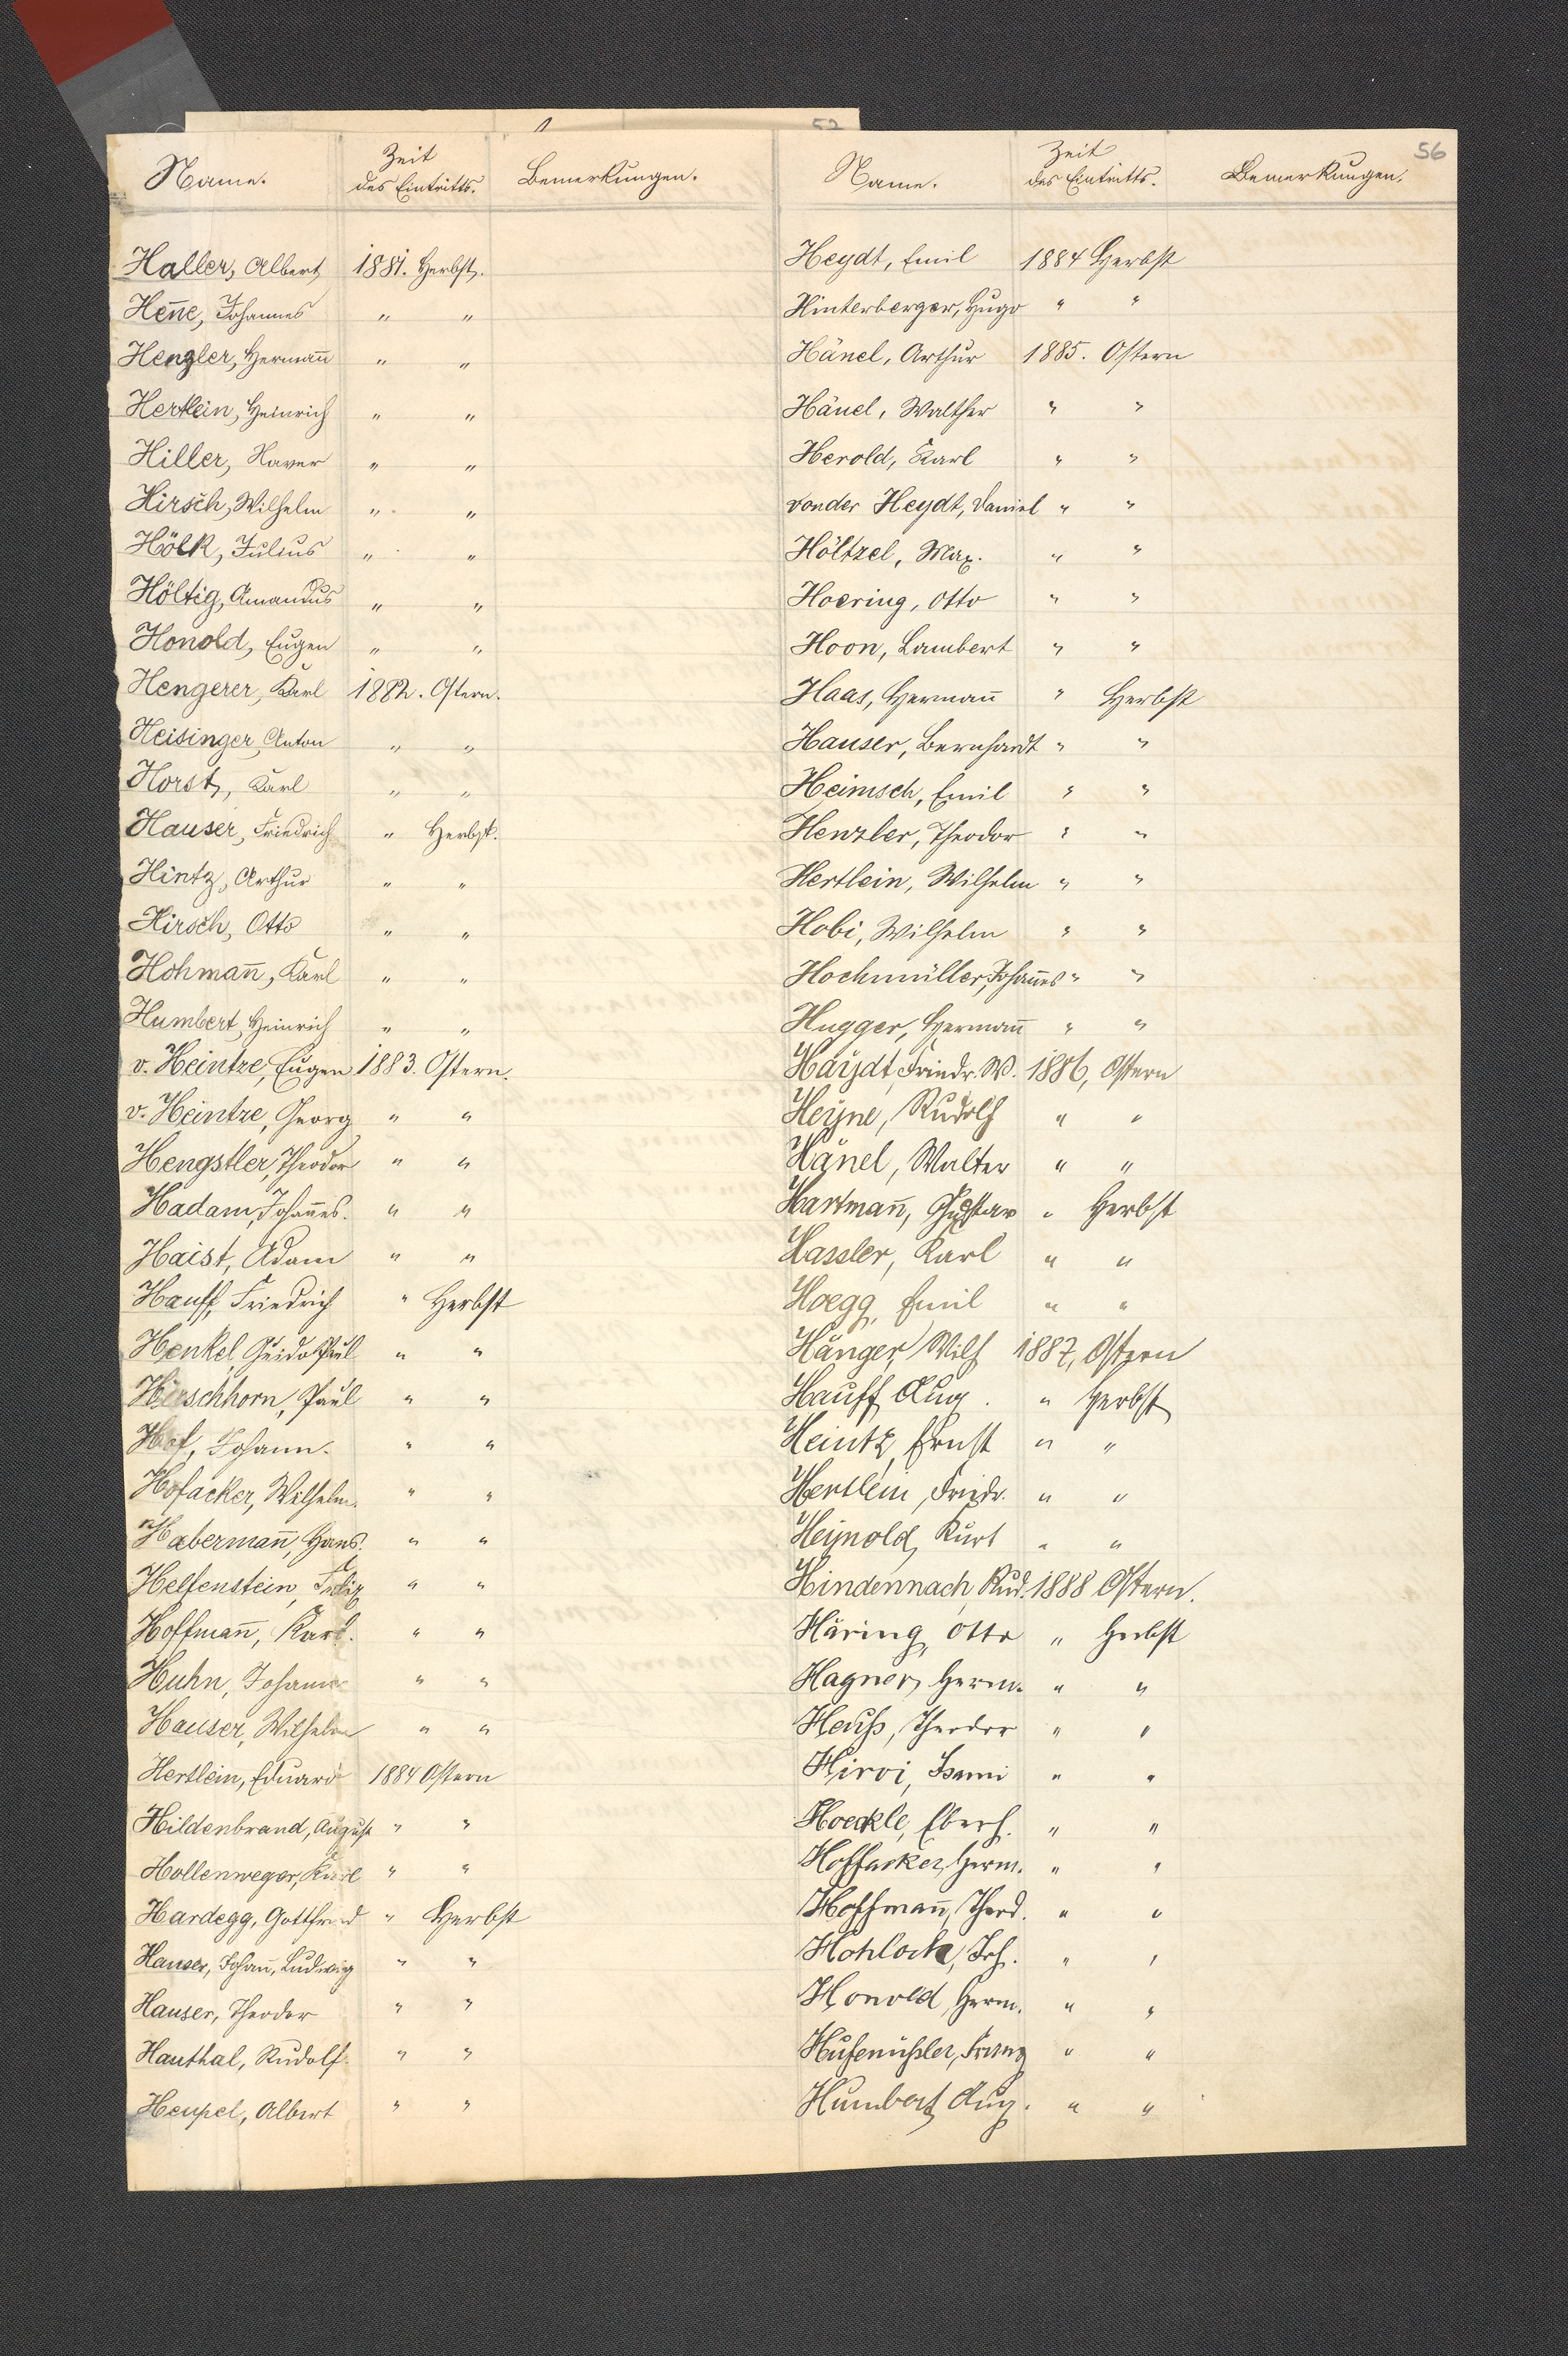 52
56
Name. Zeit des Eintritts. Bemerkungen.
Haller, Albert 1881. Herbst.
Hen̄e, Johannes " "
Henzler, Herman̄ " "
Hertlein, Heinrich " "
Hiller, Xaver " "
Hirsch, Wilhelm " "
Hölk, Julius " "
Höltig, Amandus " "
Honold, Eugen " "
Hengerer, Karl 1882. Ostern.
Heisinger, Anton " "
Horst, Karl " "
Hauser, Friedrich " Herbst.
Hintz, Arthur " "
Hirsch, Otto " "
Hohman̄, Karl " "
Humbert, Heinrich " "
v. Heintze, Eugen 1883. Ostern.
v. Heintze, Georg " "
Hengstler, Theodor " "
Hadam, Johan̄es. " "
Haist, Adam " "
Hauff, Friedrich " Herbst
Henkel, Guido Paul " "
Hirschhorn, Paul " "
Hof, Johann. " "
Hofacker, Wilhelm. " "
Haberman̄, Hans. " "
Helfenstein, Felix " "
Hoffman̄, Karl. " "
Huhn, Johann " "
Hauser, Wilhelm " "
Hertlein, Eduard 1884 Ostern
Hildenbrand, August " "
Hollenweger, Karl " "
Hardegg, Gottfried " Herbst
Hauser, Johan̄, Ludwig " "
Hauser, Theodor " "
Hauthal, Rudolf. " "
Heupel, Albert " "
Name. Zeit des Eintritts. Bemerkungen.
Heydt, Emil 1884 Herbst
Hinterberger, Hugo " "
Hänel, Arthur 1885. Ostern
Hänel, Walther " "
Herold, Karl " "
von der Heydt, Daniel " "
Höltzel, Max. " "
Hoering, Otto " "
Hoon, Lambert " "
Haas, Herman̄ " Herbst
Hauser, Bernhardt " "
Heimsch, Emil " "
Henzler, Theodor " "
Hertlein, Wilhelm " "
Hobi, Wilhelm " "
Hochmüller, Johan̄es " "
Hugger, Herman̄ " "
Haydt, Friedr. W. 1886, Ostern
Heyne, Rudolf " "
Hänel, Walter " "
Hartman̄, Gustav " Herbst
Hassler, Karl " "
Hoegg, Emil " "
Hänger, Wilh 1887, Ostern
Hauff, Aug. " Herbst
Heintz, Ernst " "
Hertlein, Friedr. " "
Heynold, Kurt " "
Hindennach, Rud. 1888 Ostern.
Häring, Otto " Herbst
Hagner, Herm. " "
Heuß, Theodor " "
Hiroi, Isami " "
Hoeckle, Eberh. " "
Hoffacker, Herm. " "
Hoffman̄, Theod. " "
Hohloch, Joh. " "
Honold, Herm. " "
Hufenüßler, Franz " "
Humbert, Aug. " "